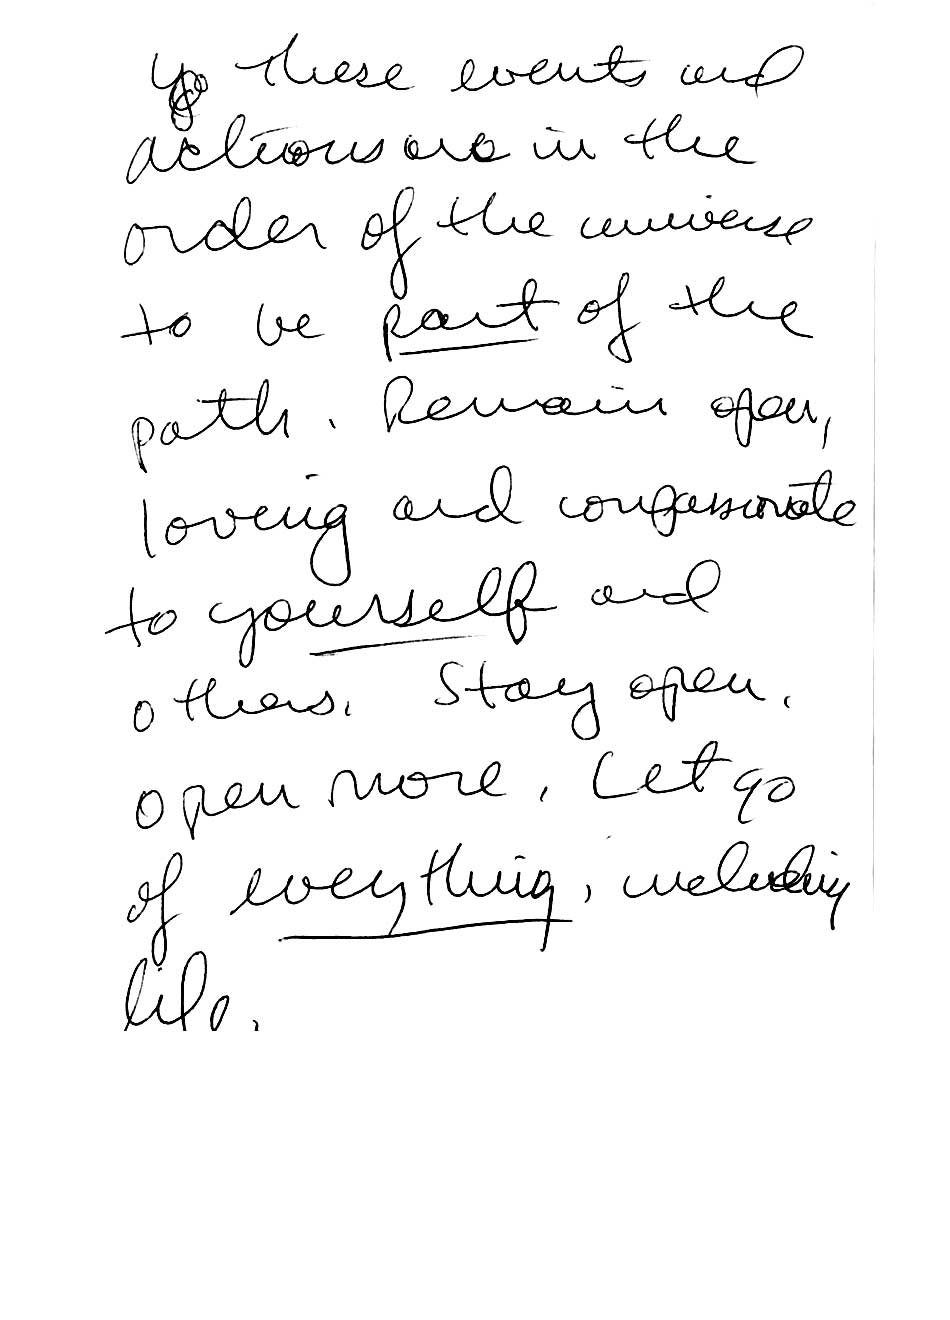 these events and
actions are in the
order of the universe
to be part of the
path. Remain open,
loving and compassionate
to yourself and
others. Stay open.
open more. Let go
of everything, including
life.